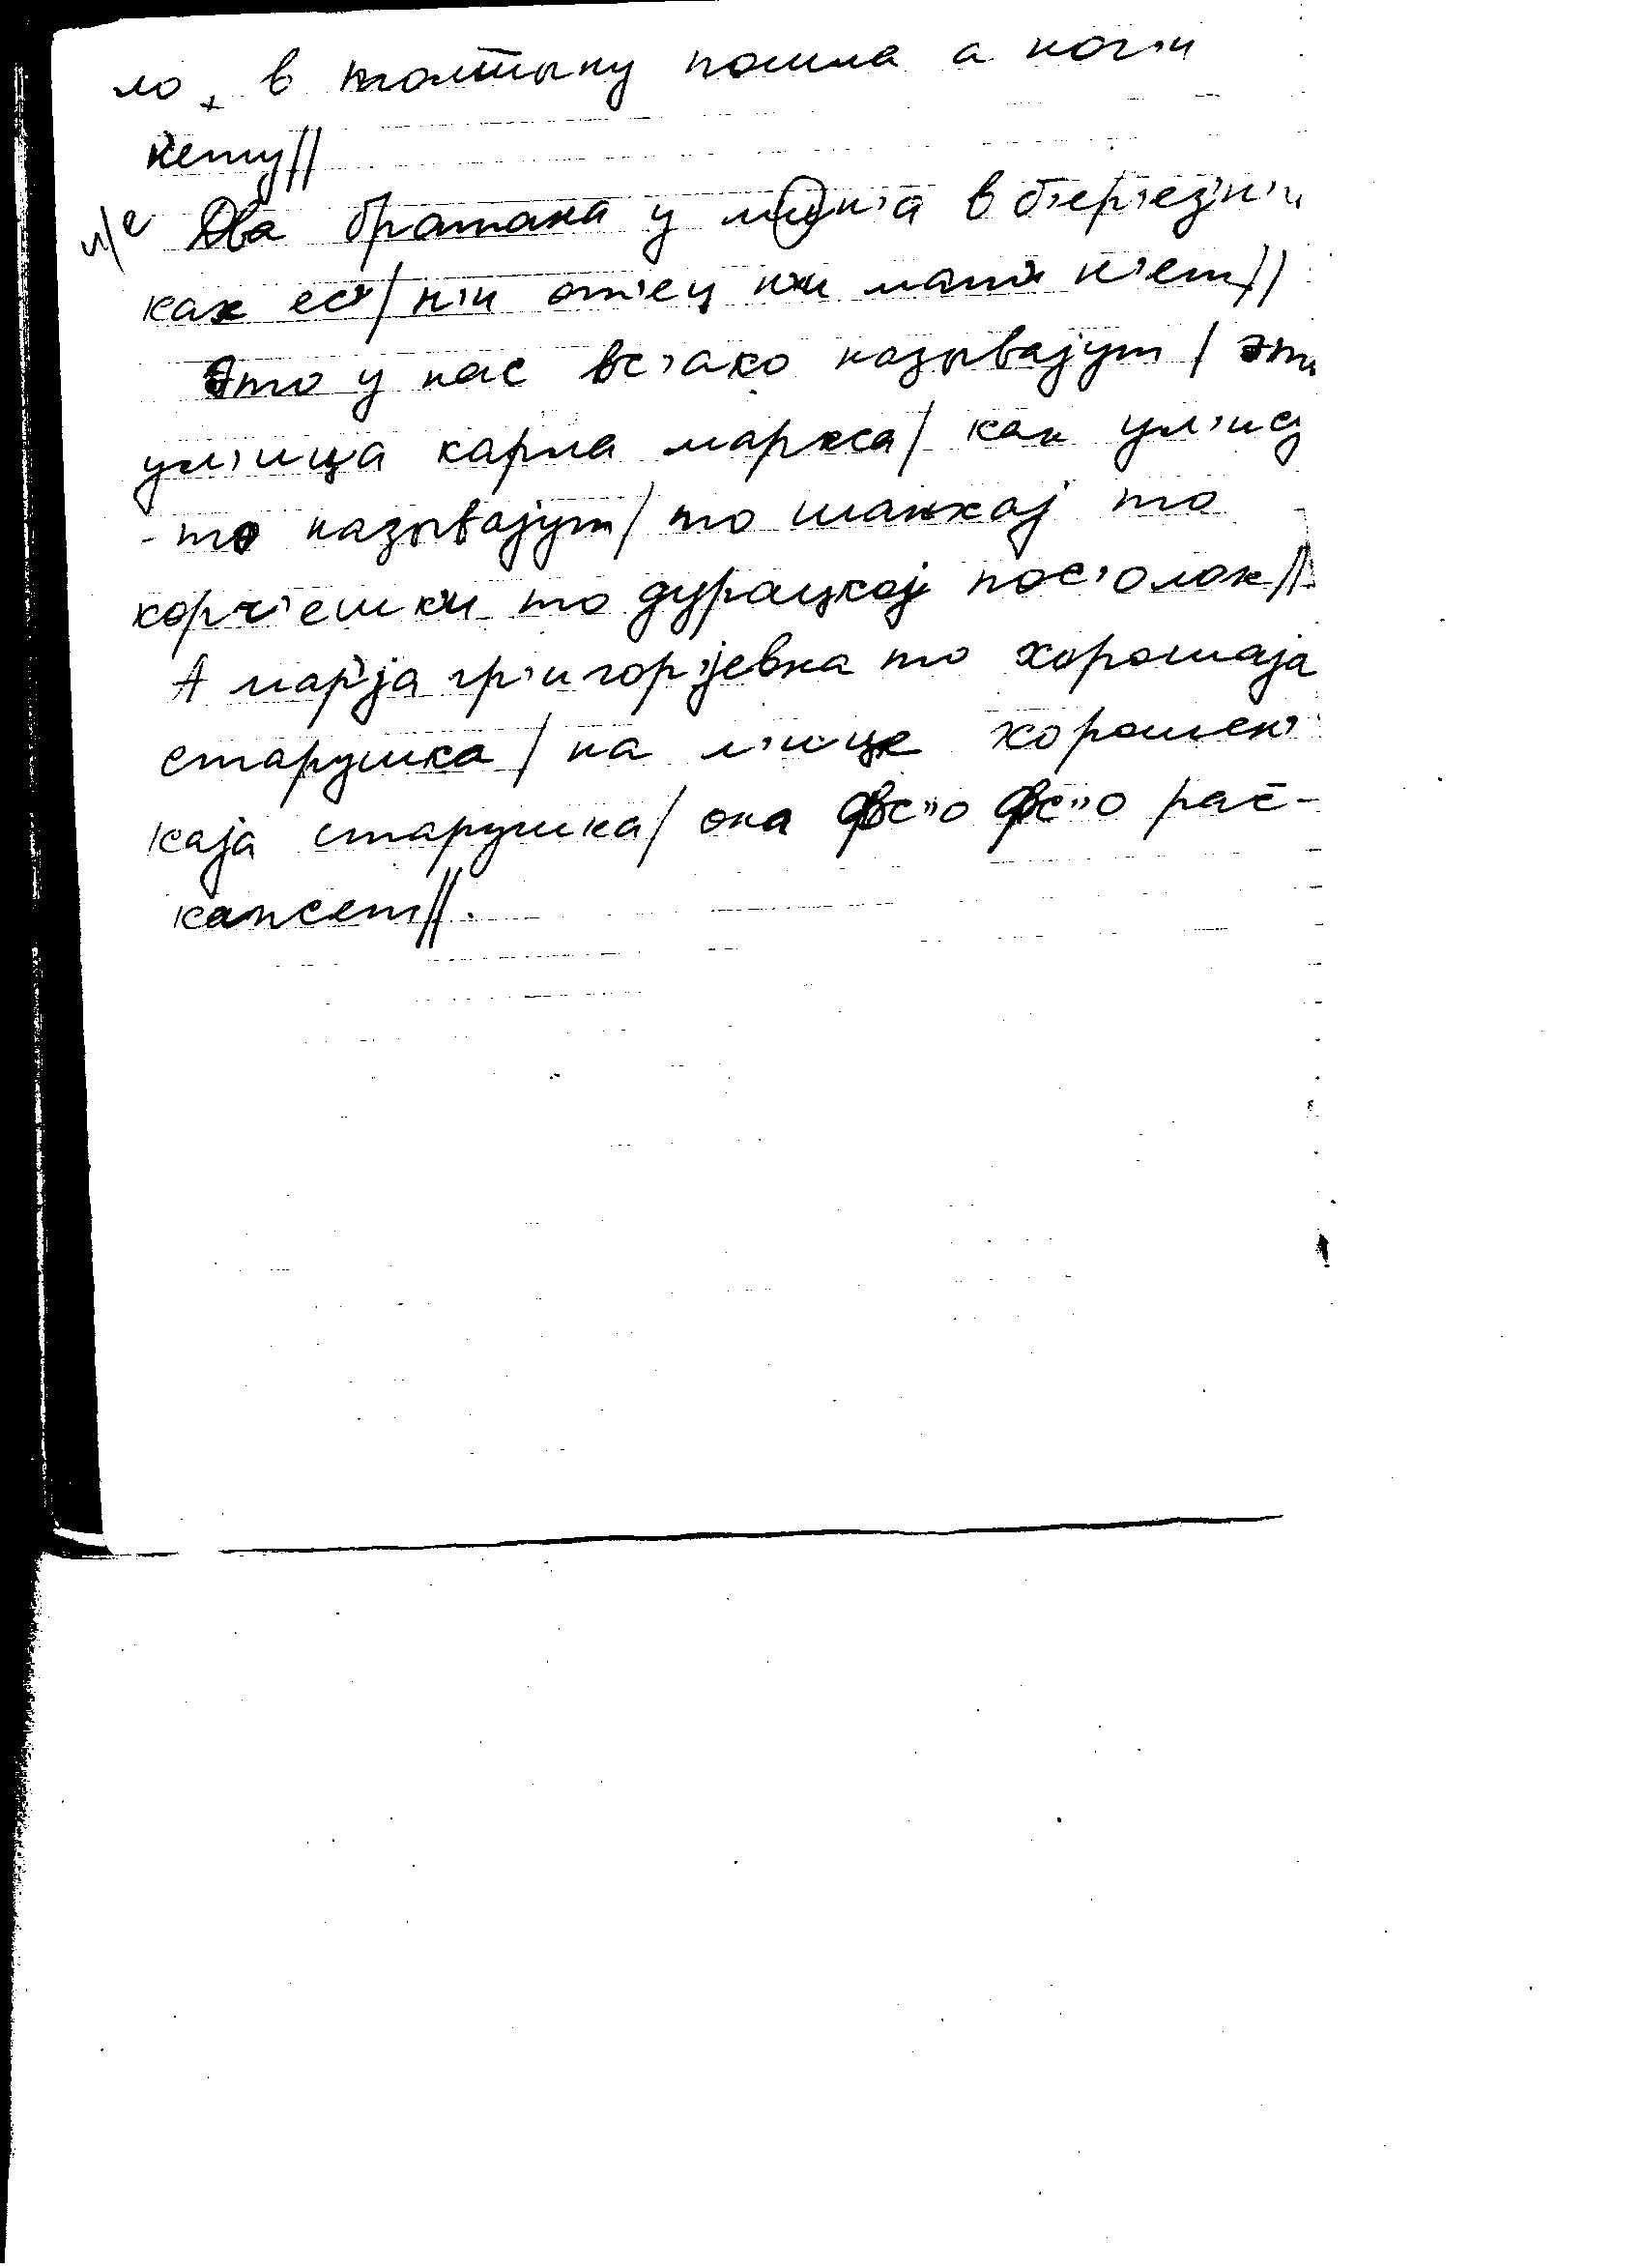 ло, в толтыну пошла а ног'и
нету//
и/е Два братана у мин'а в б'ер'ез'н'и
как ес'/н'и от'ец н'и мат' н'ет//
Это у нас вс'ако называјут/ эта
ул'ица карла маркса/ как ул'иц
-то называјут/ то шанхај то
корч'ешк'и то дурацкој пос'олок//
А мар'ја гр'игор'јевна то хорошаја
старушка/ на л'ице хорошен'
каја старушка/ она фс"о фс"о рас-
кажет//.